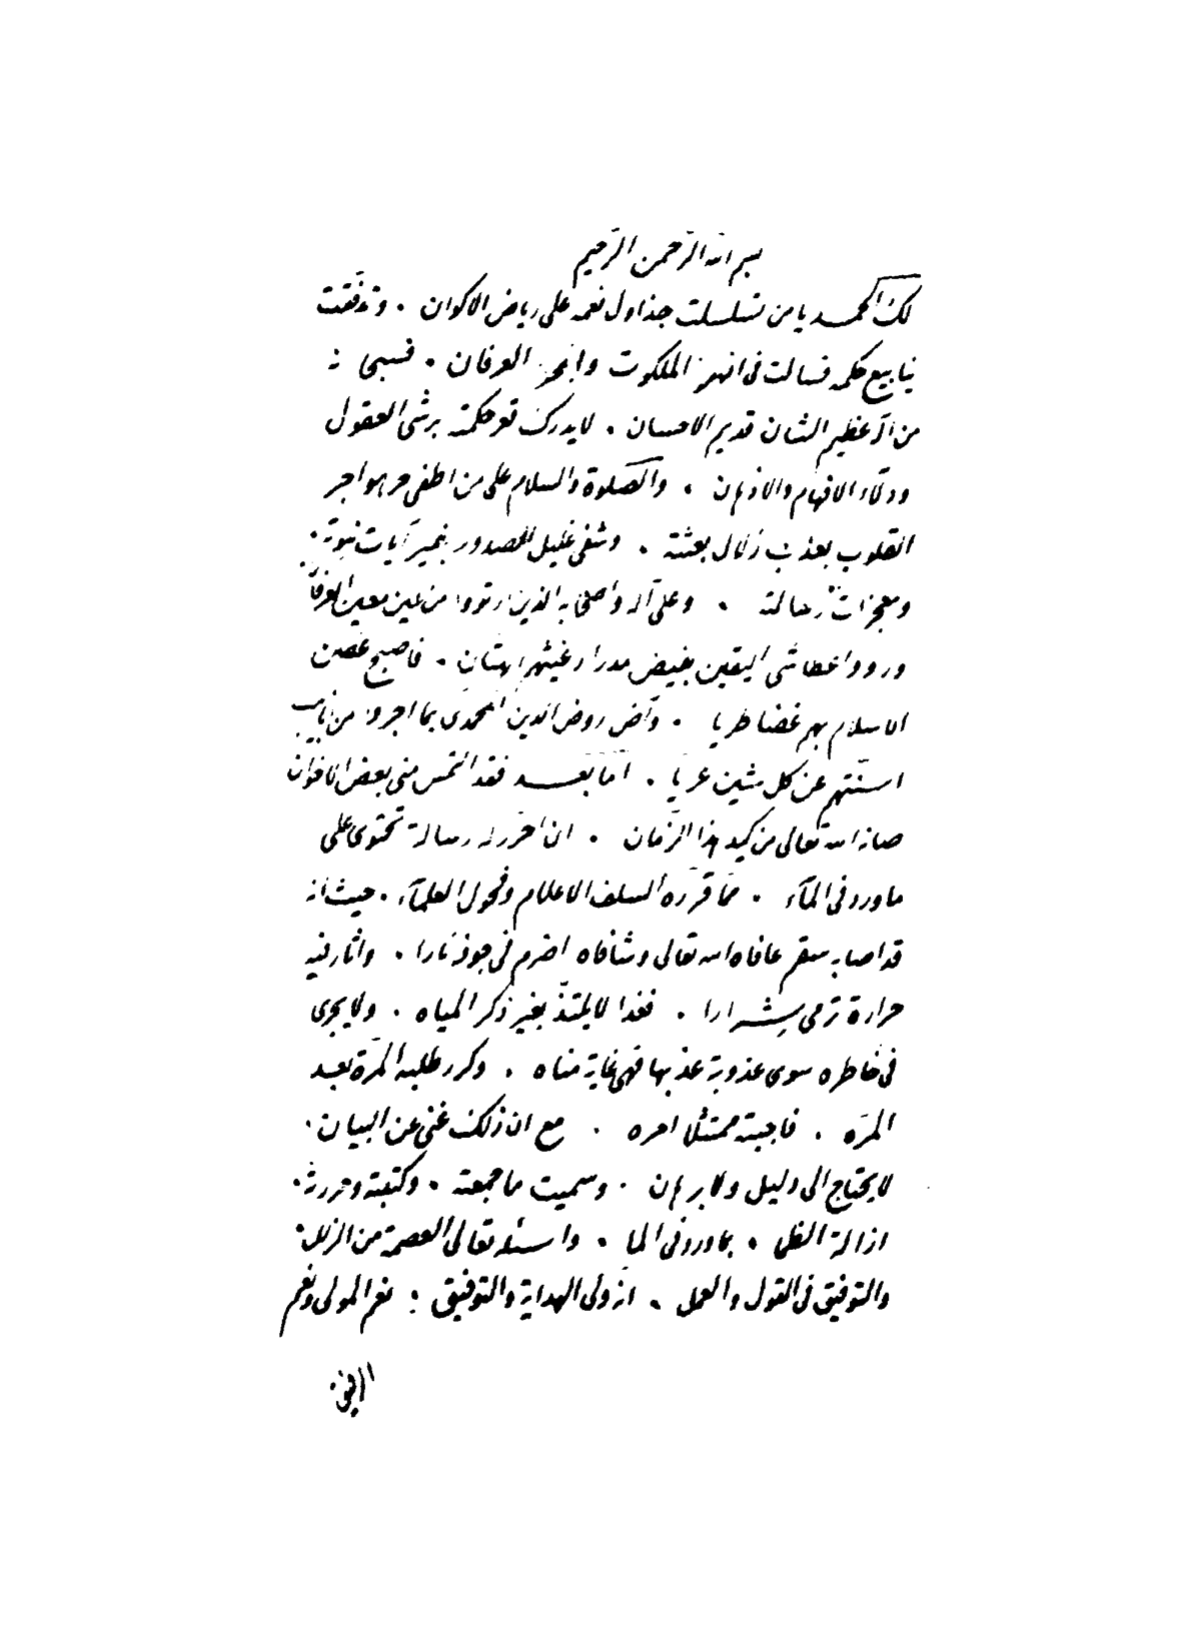 بسم الله الرّحمن الرّحيم
لك الحمد يا من تسلسلت جداول نعمه على رياض الاكوان . وتدفّقت
ينابيع حكمه فسالت فى انهر الملكوت وابحر العرفان . فسبحانه
من آله عظيم الشان قديم الاحسان . لا يدرك قعر حكمته برشى العقول
ودلاء الافهام والاذهان . والصّلوة والسلام على من اطفى حر هواجر
القلوب بعذب زلال بعثته . وشفى غليل الصدور بنمير آيات نبوته .
ومعجزات رسالته . وعلى آله واصحابه الذين ارتووا من عين معين العرفان
ورووا عطاشى اليقين بفيض مدرار غيثهم الهتان . فاصبح غصن
الاسلام بهم غضا طريا . وآض روض الدين المحمدى بما اجروه من ينابيب
اسنّتهم عن كل شين عريا . امّا بعد فقد التمس منى بعض الاخوان
صانه الله تعالى من كيد هذا الزّمان . ان احرّر له رسالة تحتوى على
ما ورد فى المآء . ممّا قرّره السلف الاعلام وفحول العلمآء . حيث انه
قد اصابه سقم عافاه الله تعالى وشافاه اضرم فى جوفه نارا . واثار فيه
حرارة ترمى بشرارا . فغدا لا يلتذّ بغير ذكر المياه . ولا يجرى
فى خاطره سوى عذوبة عذبها فهى غاية مناه . وكرر طلبه المرّة بعد
المرّه . فاجبته ممتثلا امره . مع ان ذلك غنى عن البيان .
لا يحتاج الى دليل ولا برهان . وسميت ما جمعته . وكتبته وحررته .
ازالة الظما . بما ورد فى الما . واسئله تعالى العصمة من الزلل .
والتوفيق فى القول والعمل . انه ولى الهداية والتوفيق : نعم المولى ونعم
الرفيق .